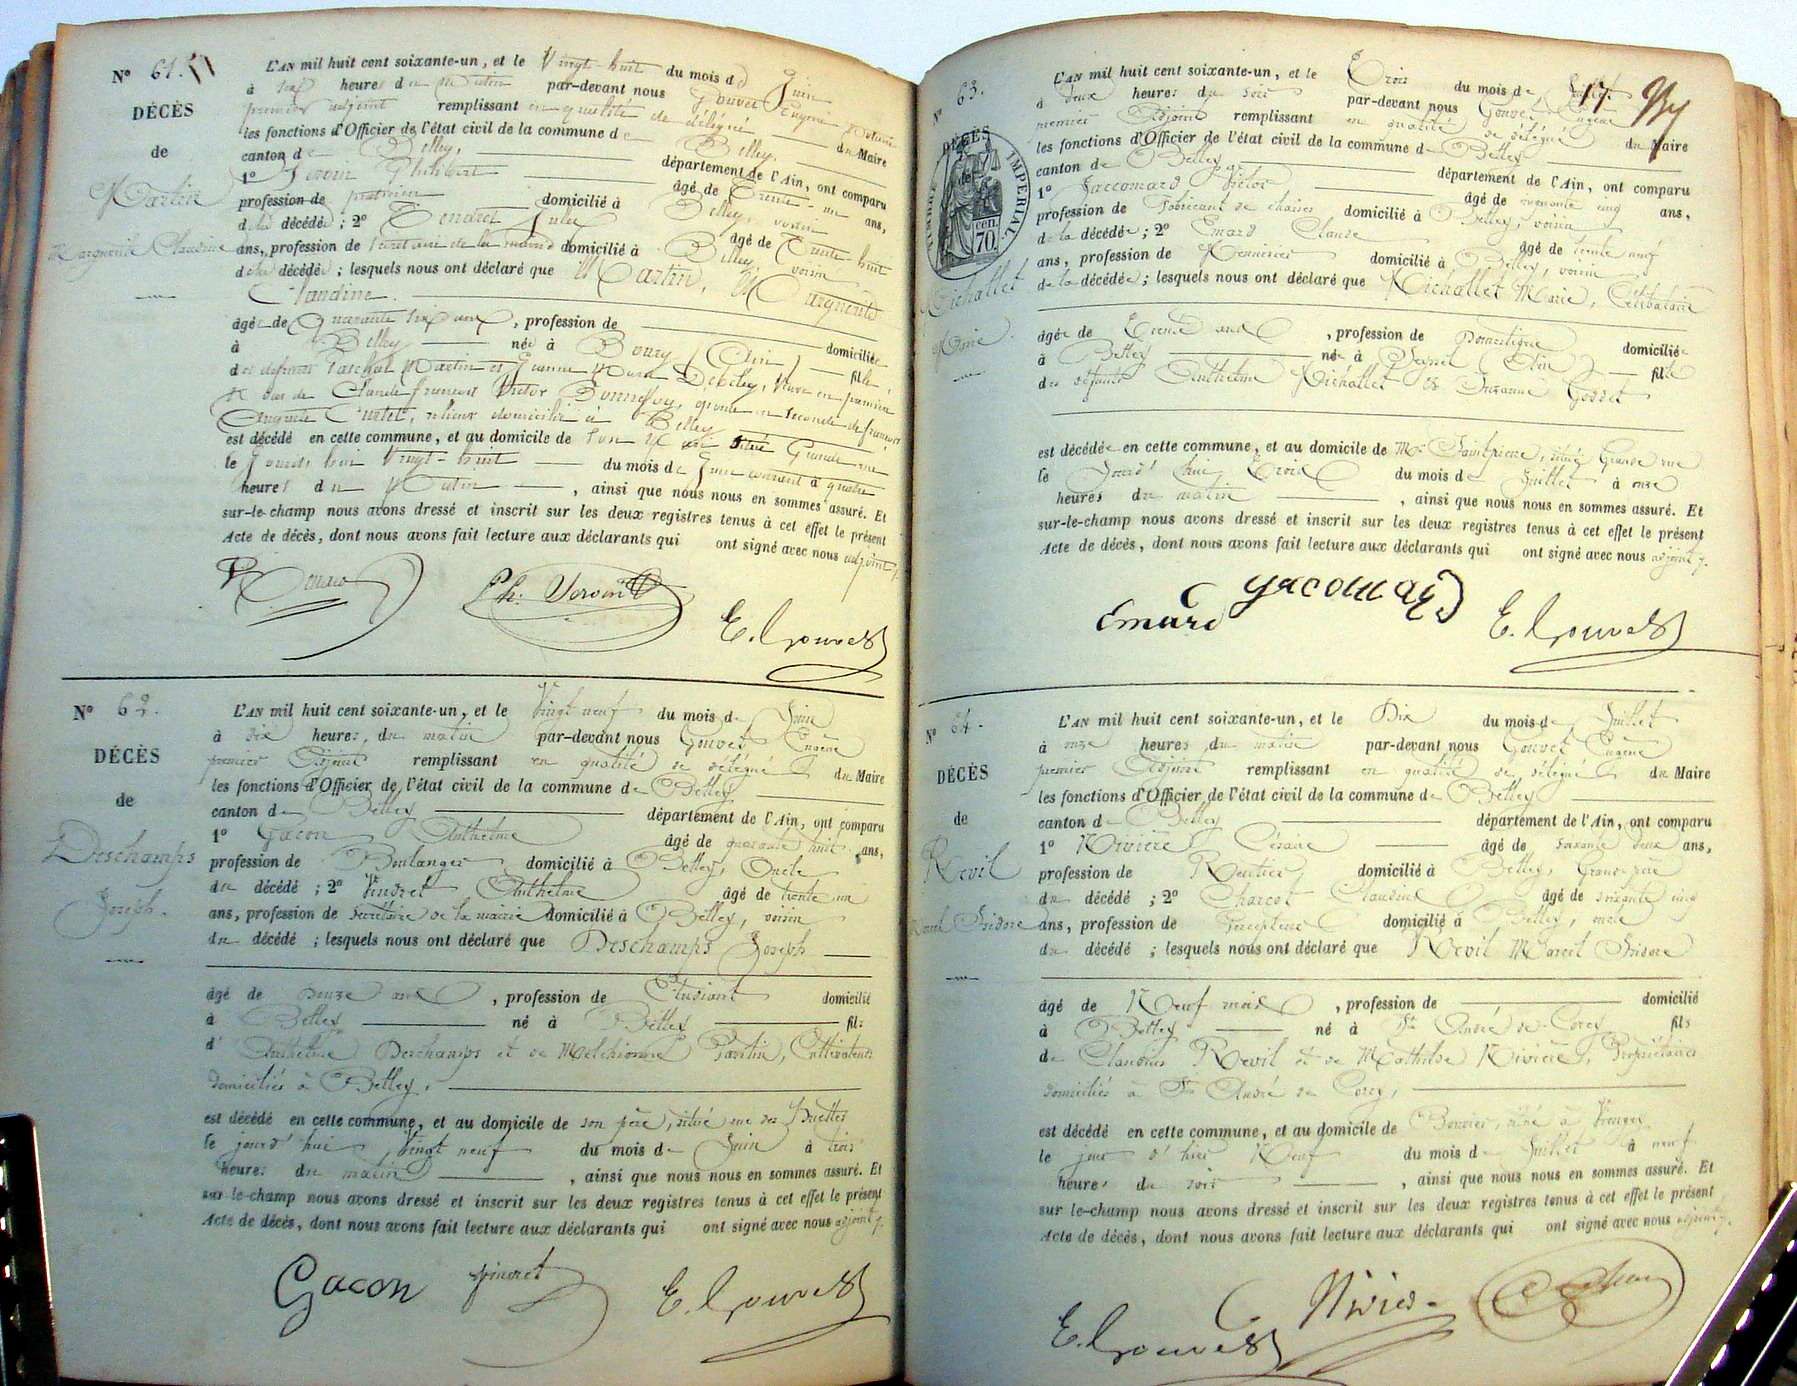 N° 61.
DÉCÈS
de
Martin
Marguerite Claudine
L'AN mil huit cent soixante-un, et le Vingt-huit du mois de Juin
à six heures du Matin par-devant nous Gouvet Eugène
premier adjoint remplissant en qualité de délégué du Maire
les fonctions d'Officier de l'état civil de la commune de Belley
canton de Belley, département de l'Ain, ont comparu
1° Philibert âgé de Trente-un ans,
profession de domicilié à Belley, voisin
de la décédée ; 2° Jules âgé de Trente huit
ans, profession de Secrétaire de la mairie domicilié à Belley, voisin
de la décédée ; lesquels nous ont déclaré que Martin, Marguerite
Claudine
âgée de Quarante six ans, profession de domiciliée
à Belley née à (Ain) fille
des défunts Martin et Jeanne Veuve en première
de Claude François Victor Bonnefoy, épouse en seconde de François
domicilié à Belley
est décédé en cette commune, et au domicile de son situé Grande rue
le Jourd'hui Vingt-huit du mois de Juin courant à quatre
heures du Matin, ainsi que nous nous en sommes assuré. Et
sur-le-champ nous avons dressé et inscrit sur les deux registres tenus à cet effet le présent
Acte de décès, dont nous avons fait lecture aux déclarants qui ont signé avec nous adjoint
E. Gouvet
N° 62.
DÉCÈS
de
Deschamps
Joseph.
L'AN mil huit cent soixante-un, et le Vingt neuf du mois de Juin
à dix heures, du matin par-devant nous Gouvet Eugène
premier Adjoint remplissant en qualité de délégué du Maire
les fonctions d'Officier de l'état civil de la commune de Belley
canton de Belley département de l'Ain, ont comparu
1° Gacon Anthelme âgé de quarante huit ans,
profession de Boulanger domicilié à Belley, Oncle
du décédé ; 2° Vindret Anthelme âgé de trente un
ans, profession de Secrétaire de la mairie domicilié à Belley, voisin
du décédé ; lesquels nous ont déclaré que Deschamps Joseph
âgé de douze ans, profession de Etudiant domicilié
à Belley né à Belley fils
d' Anthelme Deschamps et de Melchionne Cultivateurs
domiciliés à Belley,
est décédé en cette commune, et au domicile de son père, situé rue des
le jourd'hui Vingt neuf du mois de Juin à trois
heures du matin, ainsi que nous nous en sommes assuré. Et
sur-le-champ nous avons dressé et inscrit sur les deux registres tenus à cet effet le présent
Acte de décès, dont nous avons fait lecture aux déclarants qui ont signé avec nous adjoint
Gacon Vindret E. Gouvet
17
N° 63.
DÉCÈS
de
TIMBRE IMPÉRIAL
70
Marie
L'AN mil huit cent soixante-un, et le Trois du mois de Juillet
à deux heures du soir par-devant nous Gouvet Eugène
premier Adjoint remplissant en qualité de délégué du Maire
les fonctions d'Officier de l'état civil de la commune de Belley
canton de Belley département de l'Ain, ont comparu
1° Jaccomard Victor âgé de cinq ans,
profession de Fabricant de chaises domicilié à Belley, voisin
de la décédée ; 2° Emard Claude âgé de trente neuf
ans, profession de domicilié à Belley, voisin
de la décédée ; lesquels nous ont déclaré que Marie, Célibataire
âgée de Trente ans, profession de Domestique domiciliée
à Belley née à (Ain) fille
de défunts Anthelme et Suzanne
est décédée en cette commune, et au domicile de Mr situé Grande rue
le Jourd'hui Trois du mois de Juillet à onze
heures du matin, ainsi que nous nous en sommes assuré. Et
sur-le-champ nous avons dressé et inscrit sur les deux registres tenus à cet effet le présent
Acte de décès, dont nous avons fait lecture aux déclarants qui ont signé avec nous adjoint
Emard Jacomard E. Gouvet
N° 64.
DÉCÈS
de
Revil
Marcel Isidore
L'AN mil huit cent soixante-un, et le Dix du mois de Juillet
à onze heures du matin par-devant nous Gouvet Eugène
premier Adjoint remplissant en qualité de délégué du Maire
les fonctions d'Officier de l'état civil de la commune de Belley
canton de Belley département de l'Ain, ont comparu
1° Rivière Césaire âgé de soixante deux ans,
profession de Rentier domicilié à Belley, Grand père
du décédé ; 2° Charcot Claudius âgé de cinq
ans, profession de Percepteur domicilié à Belley, oncle
du décédé ; lesquels nous ont déclaré que Revil Marcel Isidore
âgé de Neuf mois, profession de domicilié
à Belley né à St André de Corcy fils
de Claudius Revil et de Mathilde Rivière, Propriétaires
domiciliés à St André de Corcy,
est décédé en cette commune, et au domicile de situé à
le jour d'hier Neuf du mois de Juillet à neuf
heures du soir, ainsi que nous nous en sommes assuré. Et
sur le-champ nous avons dressé et inscrit sur les deux registres tenus à cet effet le présent
Acte de décès, dont nous avons fait lecture aux déclarants qui ont signé avec nous adjoint
E. Gouvet